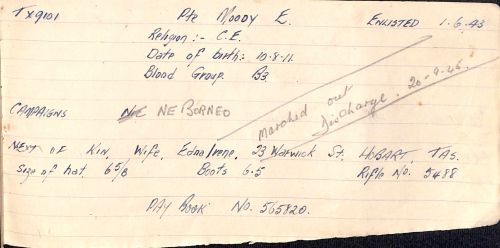 TX9101 Pte Moody E. ENLISTED 1.6.43
Religion:- C.E.
Date of birth:- 10-8-11.
Blood Group B3
CAMPAIGNS NE BORNEO
Marched out
Discharge. 20-9-45.
NEXT OF KIN, Wife, Edna Irene, 23 Warwick St. HOBART, TAS.
Size of hat 6 5/8 Boots 6.5 Rifle No. 5488
PAY BOOK No. 565820.